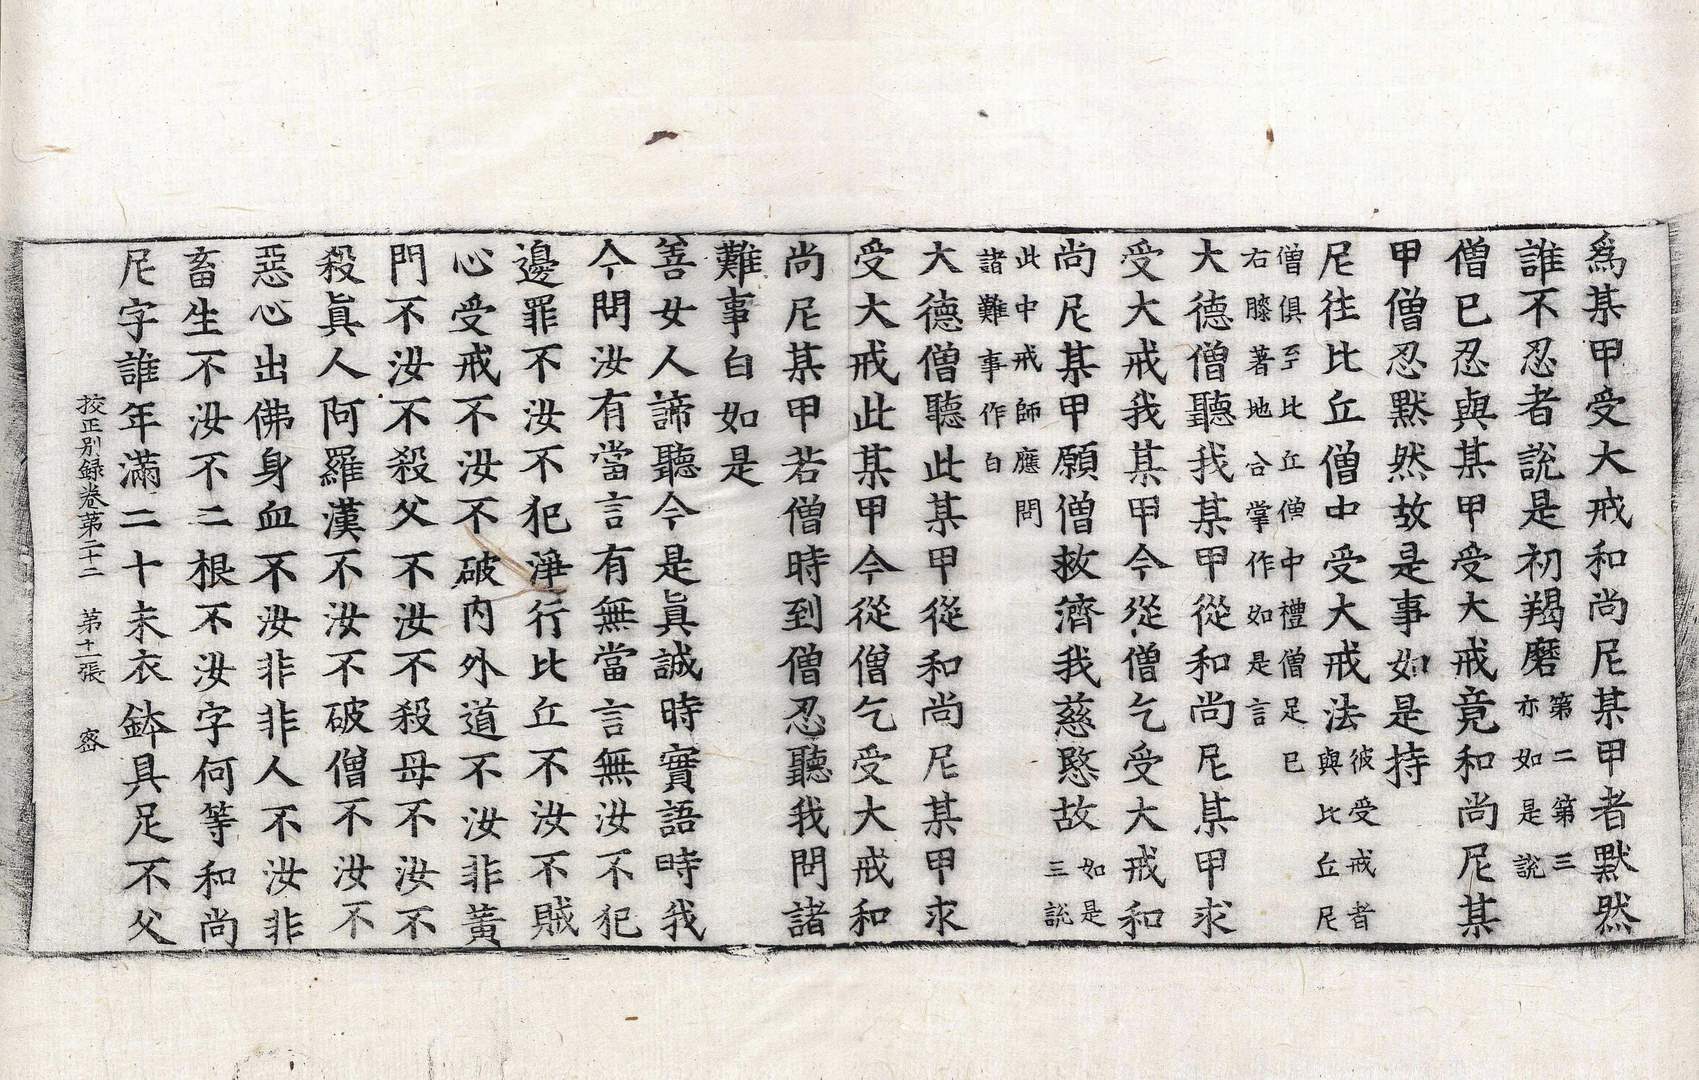 爲某甲受大戒和尚尼某甲者默然
誰不忍者說是初羯磨第二第三亦如是說
僧已忍與某甲受大戒竟和尚尼某
甲僧忍默然故是事如是持
尼往比丘僧中受大戒法彼受戒者與比丘尼
僧俱至比丘僧中禮僧足已右膝著地合掌作如是言
大德僧聽我某甲從和尚尼某甲求
受大戒我某甲今從僧乞受大戒和
尚尼某甲願僧救濟我慈愍故如是三說
此中戒師應問諸難事作白
大德僧聽此某甲從和尚尼某甲求
受大戒此某甲今從僧乞受大戒和
尚尼某甲若僧時到僧忍聽我問諸
難事白如是
善女人諦聽今是眞誠時實語時我
今問汝有當言有無當言無汝不犯
邊罪不汝不犯淨行比丘不汝不賊
心受戒不汝不破內外道不汝非黃
門不汝不殺父不汝不殺母不汝不
殺眞人阿羅漢不汝不破僧不汝不
惡心出佛身血不汝非非人不汝非
畜生不汝不二根不汝字何等和尚
尼字誰年滿二十未衣鉢具足不父
挍正別録卷第二十二 第十一張 密